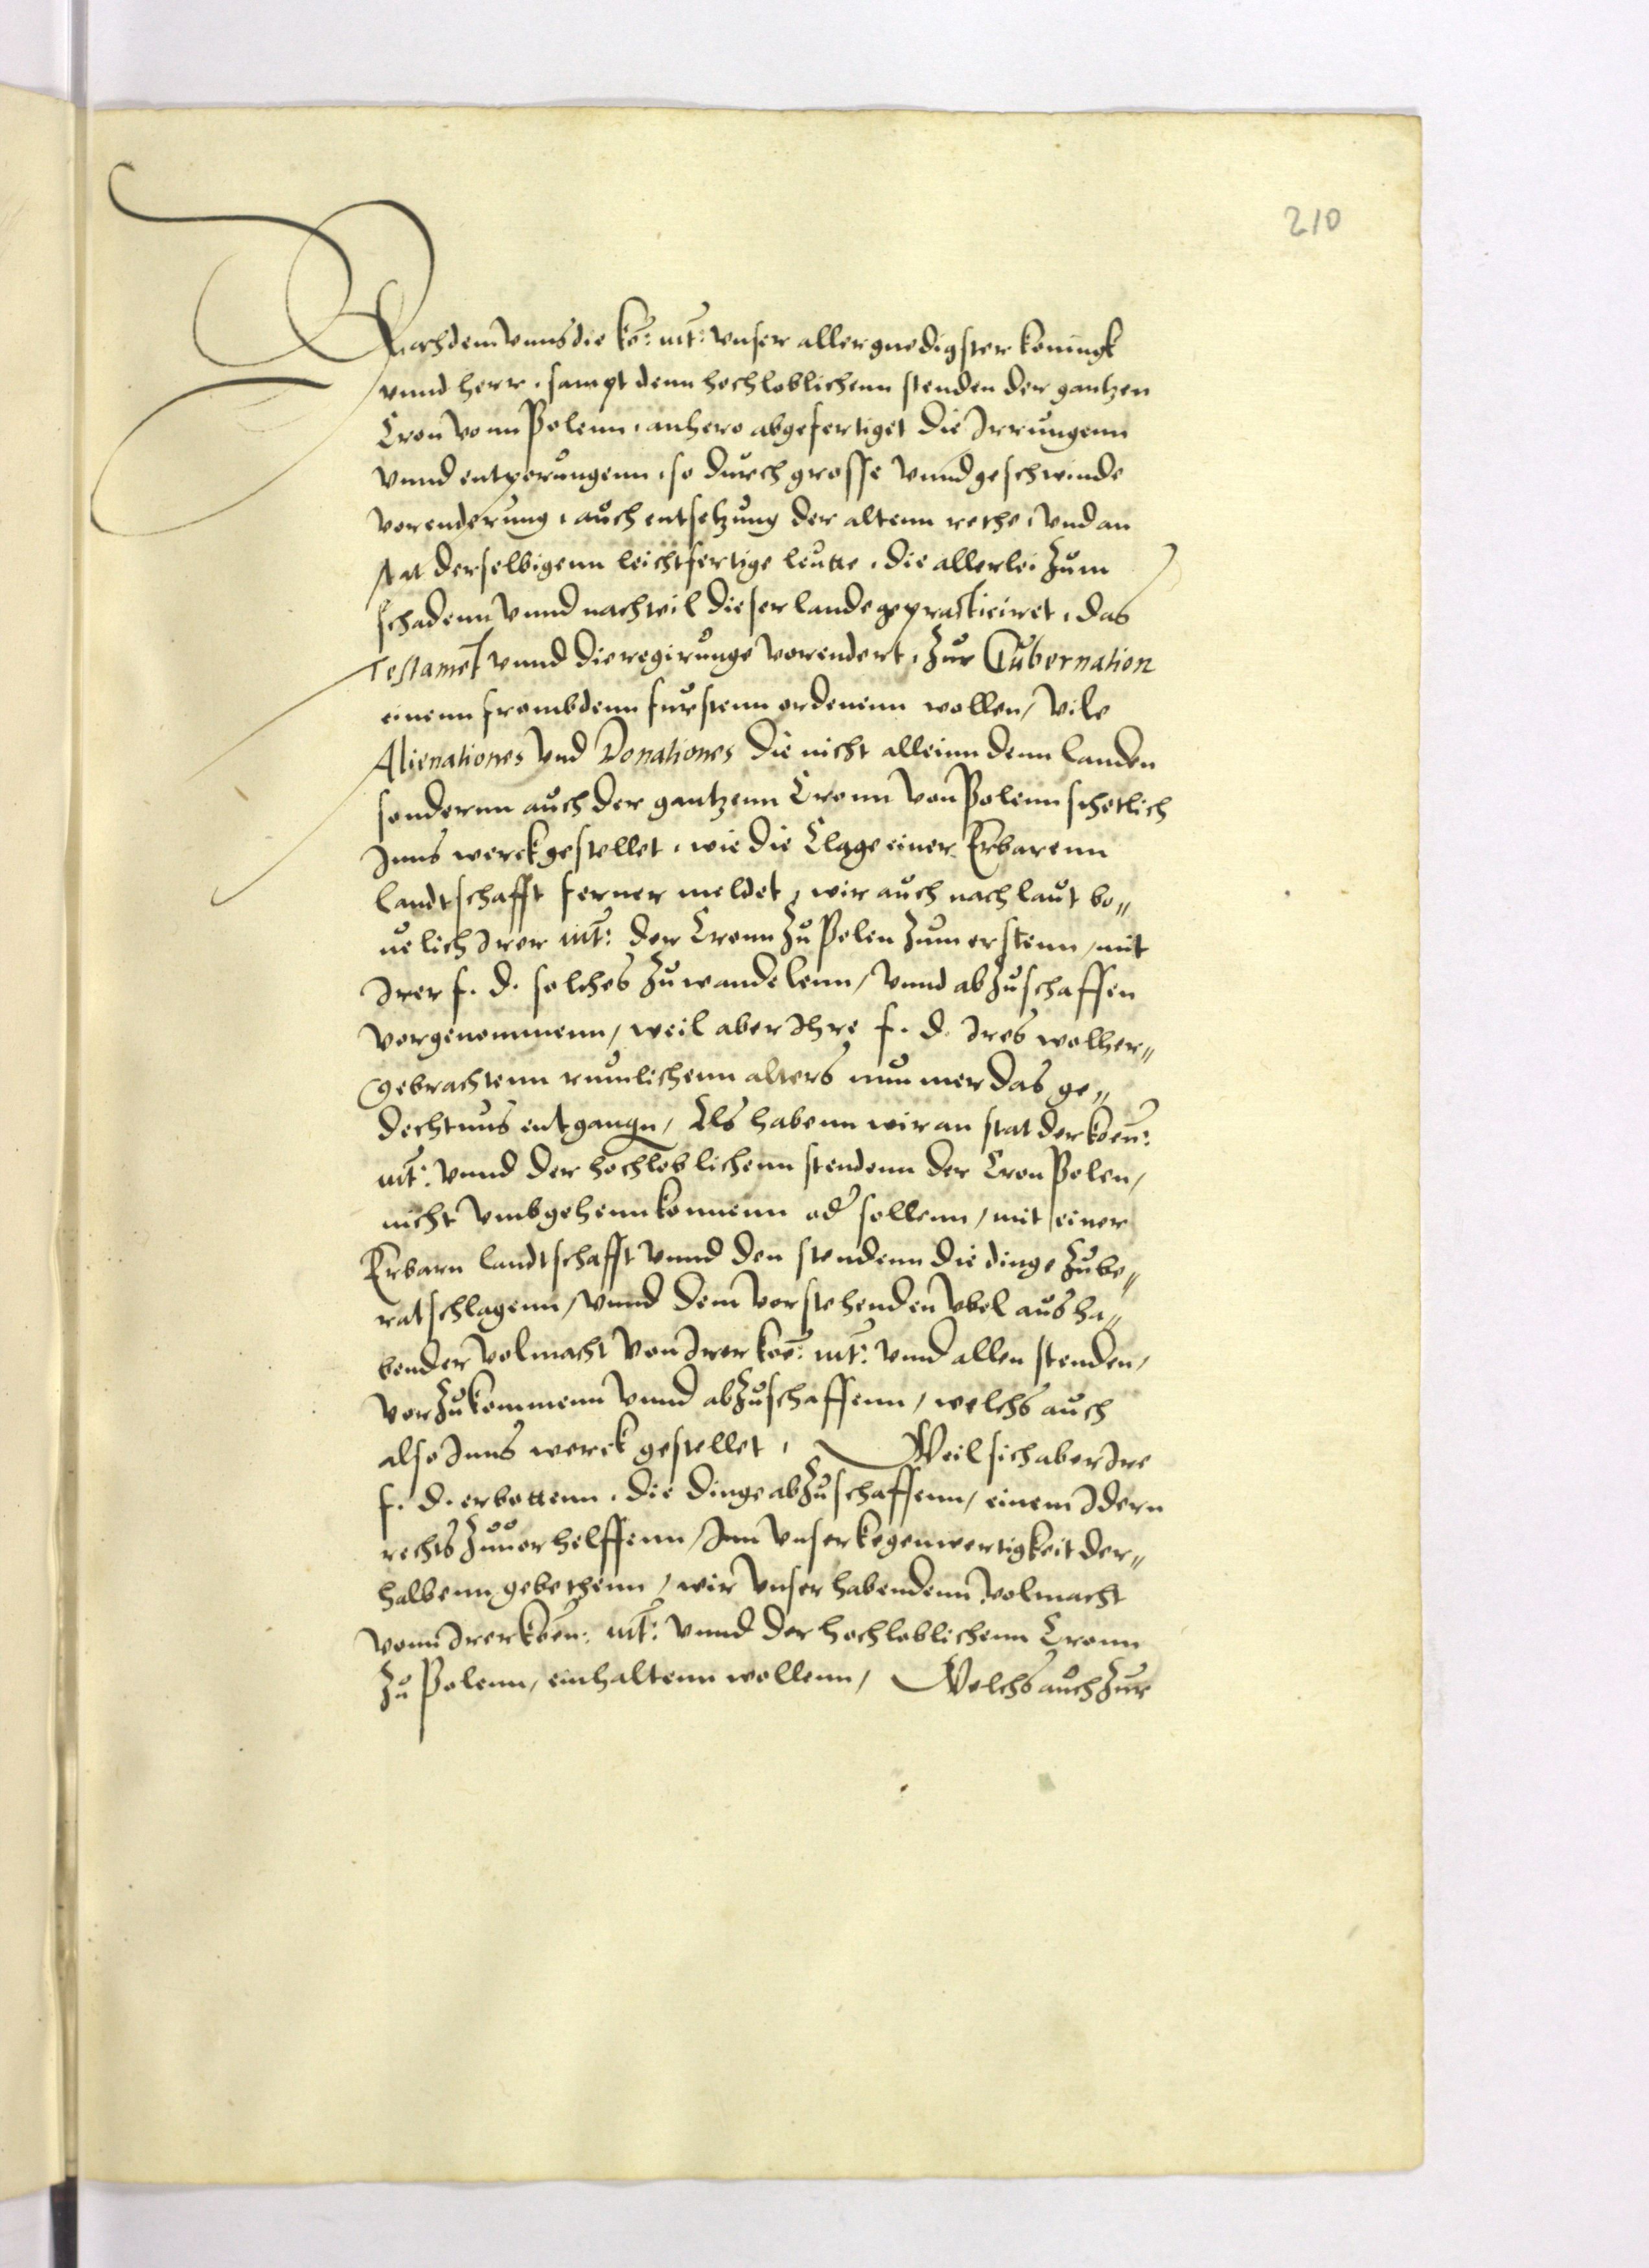 210
Nachdem vnns die ko: mt: vnser allergnedigster koningk
vnnd herr, sampt denn hochloblichenn stenden der gantzen
Cron vonn Polenn, anhero abgefertiget die Irrungenn
vnnd entporungenn, so durch grosse vnnd geschwinde
vorenderung, auch entsetzung der altenn rethe, vnd an
stat derselbigenn leichtfertige leutte, die allerlei zum
schadenn vnnd nachteil dieser lande gepracticiret, das
Testamet vnnd die regirunge vorendert, zur Gubernation
einenn frombdenn furstenn ordenenn wollen, vile
Alienationes vnd Donationes die nicht alleinn denn landen
sonderun auch der gantzenn Cronn von Polenn schetlich
Inns werck gestellet, wie die Clage einer Erbarenn
landtschafft ferner meldet, wir auch nach laut be„
uelich Irer mt: der Cronn zu Polen zum erstenn, mit
Irer f. d. solches zu wandelenn, vnnd abzuschaffen
vorgenommenn, weil aber Ihre f. d. Ires wolher„
gebrachtenn rumlichenn alters nun mer das ge„
dechtnus entgangn, Als habenn wir an stat der koen:
mt: vnnd der hochloblichenn stendenn der Cron Polen,
nicht vmbgehenn konnenn oder sollenn, mit einer
Erbarn landtschafft vnnd den stendenn die dinge zube„
ratschlagenn, vnnd dem vorstehenden vbel aus ha„
bender volmacht von Irer koe: mt: vnnd allen stenden,
vorzukommenn vnnd abzuschaffenn, welchs auch
also Inns werck gestellet, Weil sich aber Ire
f. d. erbottenn, die dinge abzuschaffenn, einem Idern
rechts zuuorhelffenn, Inn vnser kegenwertigkeit der„
halbenn gebethenn, wir vnser habendenn volmacht
vonn Irer koen: mt: vnnd der hochloblichenn Cronn
zu Polenn, einhaltenn wollenn, Welchs auch zur